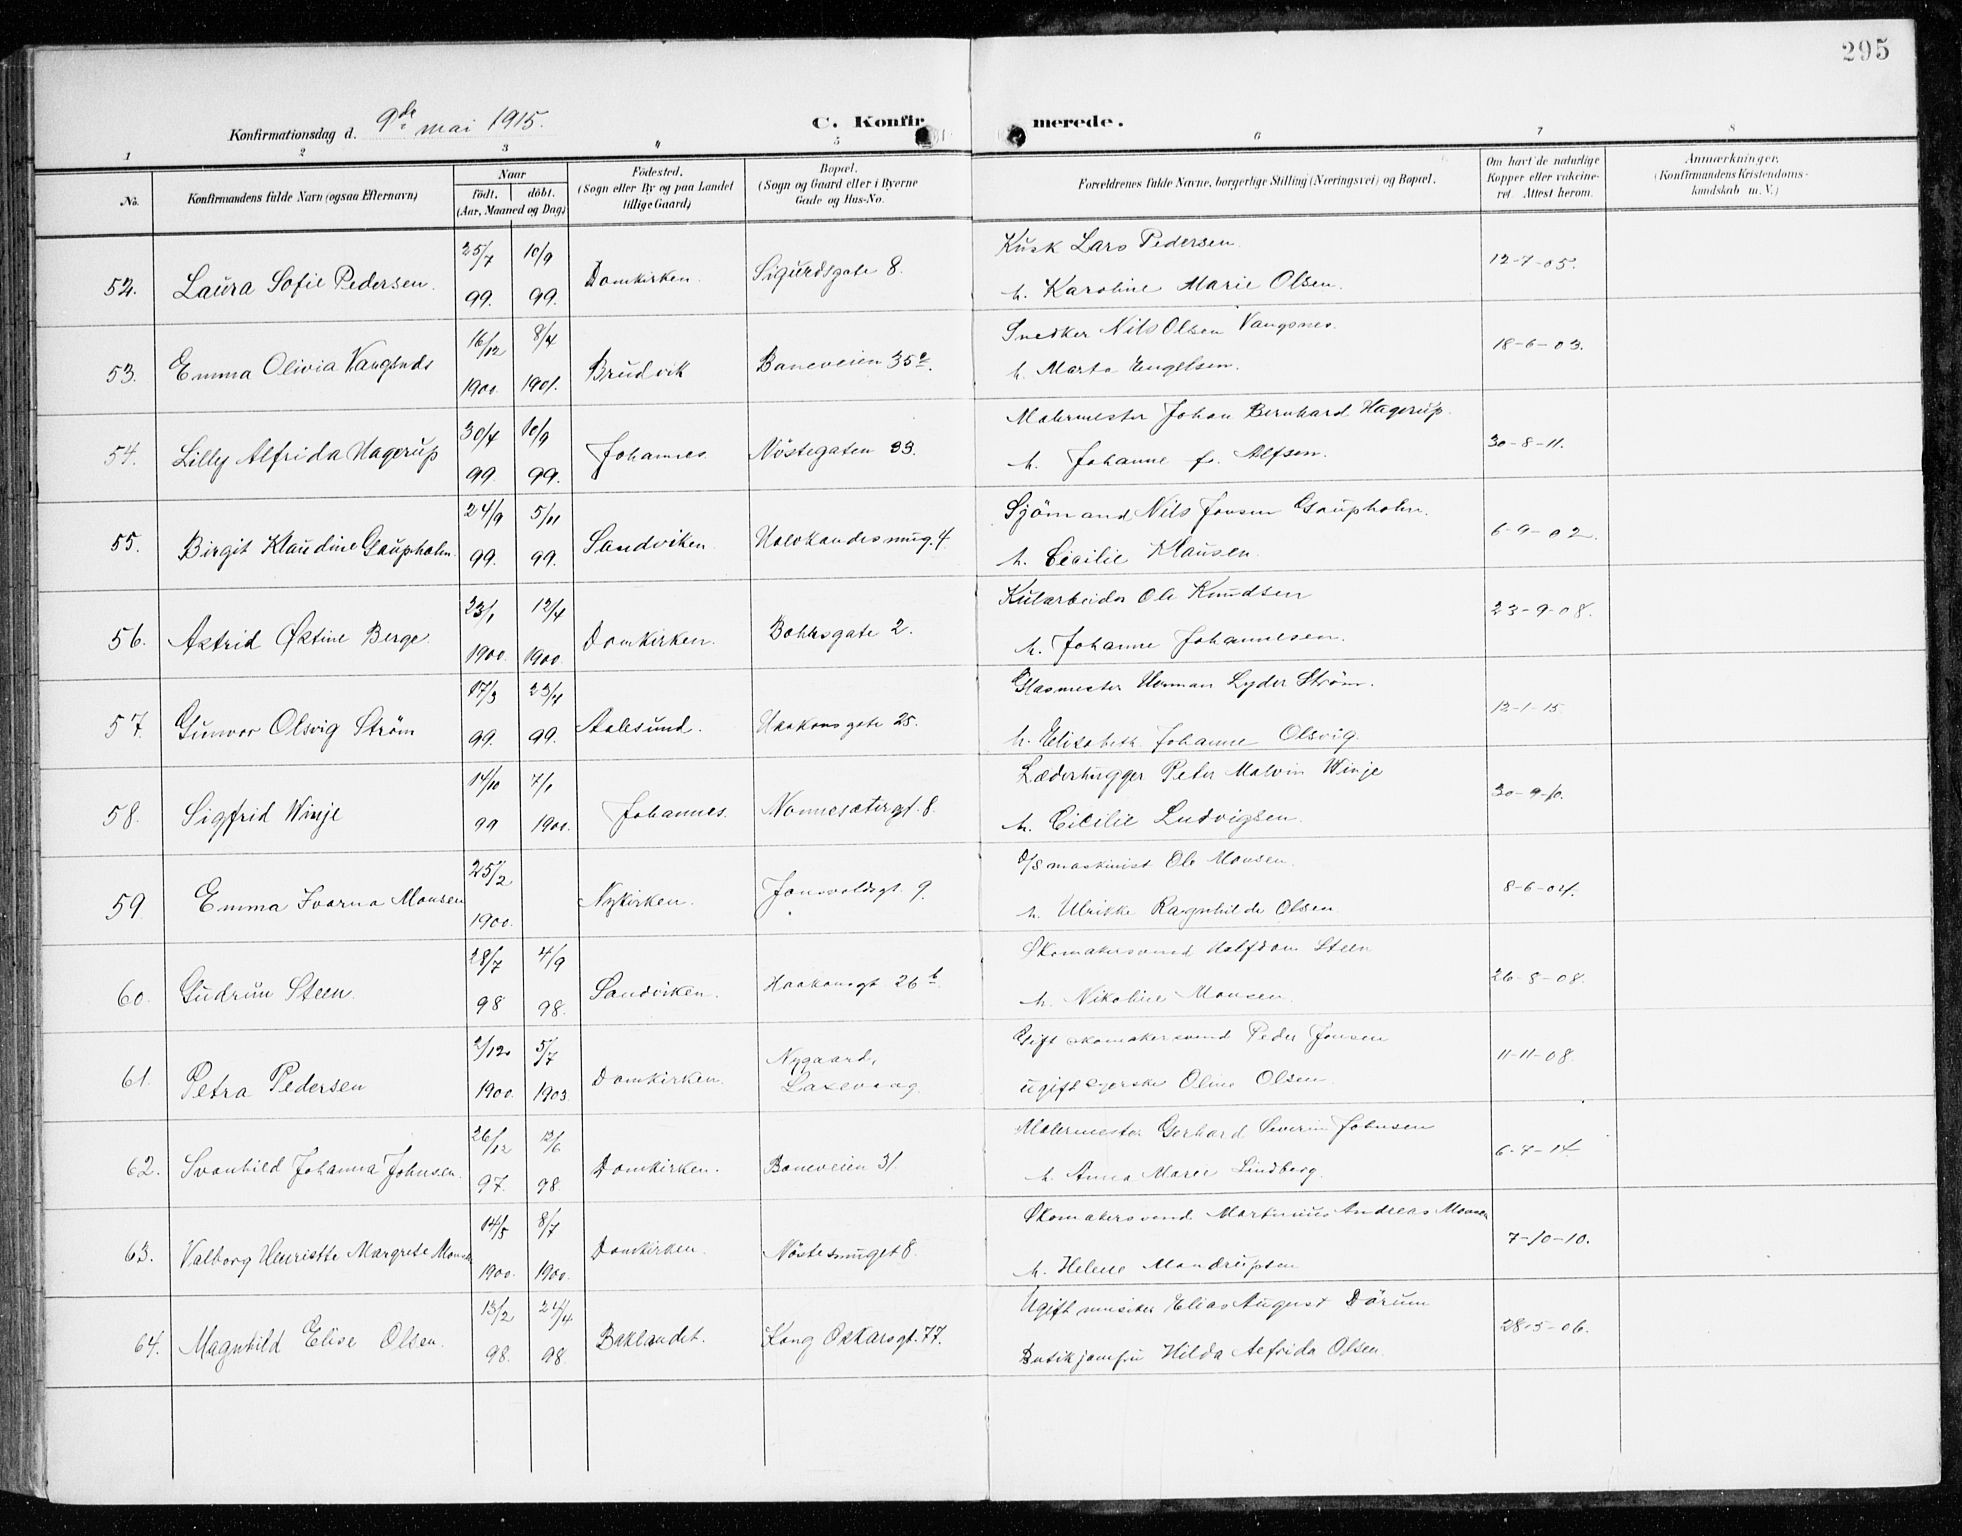 295
Konfirmationsdag d. 9de mai 1915.
C. Konfirmerede.
1 2 3 4 5 6 7 8
No.
Konfirmandens fulde Navn (ogsaa Efternavn)
Naar
födt. döbt.
(Aar, Maaned og Dag)
Födested.
(Sogn eller By og paa Landet
tillige Gaard)
Bopæl.
(Sogn og Gaard eller i Byerne
Gade og Hus-No.
Forældrenes fulde Navne, borgerlige Stilling (Næringsvei) og Bopæl.
Om havt de naturlige
Kopper eller vakcine-
ret. Attest herom.
Anmærkninger.
(Konfirmandens Kristendoms-
kundskab m. V.)
25/7 10/9 Kusk Lars Pedersen.
52. Laura Sofie Pedersen. Domkirken. Sigurdsgate 8. 12-7-05.
99. 99. h. Karoline Marie Olsen.
16/12 8/4 Snedker Nils Olsen Vangsnes.
53. Emma Olivia Vangsnes Brudvik Baneveien 35 18-6-03.
1900. 1901. h. Marta Engelsen.
30/4 10/9 Malermester Johan Bernhard Hagerup.
54. Lilly Alfrida Hagerup Johannes. Nöstegaten 33. 30-8-11.
99. 99. h. Johanne f. Alfsen.
24/9 5/11 Sjömand Nils Jonsen Gaupholm.
55. Birgit Klaudine Gaupholm. Sandviken. Halvkandesmug. 4. 6-9-02.
99. 99. h. Cecilie Klausen.
23/1 12/4 Kularbeider Ole Knudsen
56. Astrid Østine Berge. Domkirken. Bohrsgate 2. 23-9-08.
1900. 1900. h. Johanne Johannesen.
17/3 23/4 Glasmester Herman Lyder Strøm.
57. Gunvor Olsvig Strøm Aalesund. Haakonsgate 25. 12-1-15.
99. 99. h. Elisabeth Johanne Olsvig
14/10 7/1 Læderhugger Peter Malvin Winje
58. Sigfrid Winje Johannes. Nonnesætergt. 8. 30-9-10.
99 1900. h. Cicilie Ludvigsen.
25/2 D/S maskinist Ole Monsen.
59. Emma Ivarna Monsen Nykirken. Jonsvoldsgt. 9. 8-6-04.
1900. h. Ulrikke Ragnhilde Olsen.
28/7 4/9 Skomakersvend Halfdan Steen
60. Gudrun Steen. Sandviken. Haakonsgt 26 b. 26-8-08.
98 98. h. Nikoline Monsen.
2/12. 5/7 Gift skomakersvend Peder Jonsen
61. Petra Pedersen Domkirken. Nygaard, Laxevaag. 11-11-08.
1900. 1903. ugift syerske Oline Olsen.
26/12 12/6 Malermester Gerhard Severin Johnsen
62. Svanhild Johanna Johnsen. Domkirken. Baneveien 31. 6-7-14
97. 98. h. Anna Marie Lindberg.
14/5 8/7 Skomakersvend Martinius Andreas Monsen
63. Valborg Henriette Margrete Monsen Domkirken. Nöstesmuget 8. 7-10-10.
1900. 1900. h. Helene Mandrupsen
13/2 24/4 Ugift musiker Elias August Dörum
64. Magnhild Elise Olsen. Baklandet. Kong Oskarsgt. 77. 28-5-06.
98. 98. Butikjomfru Hilda Alfrida Olsen.